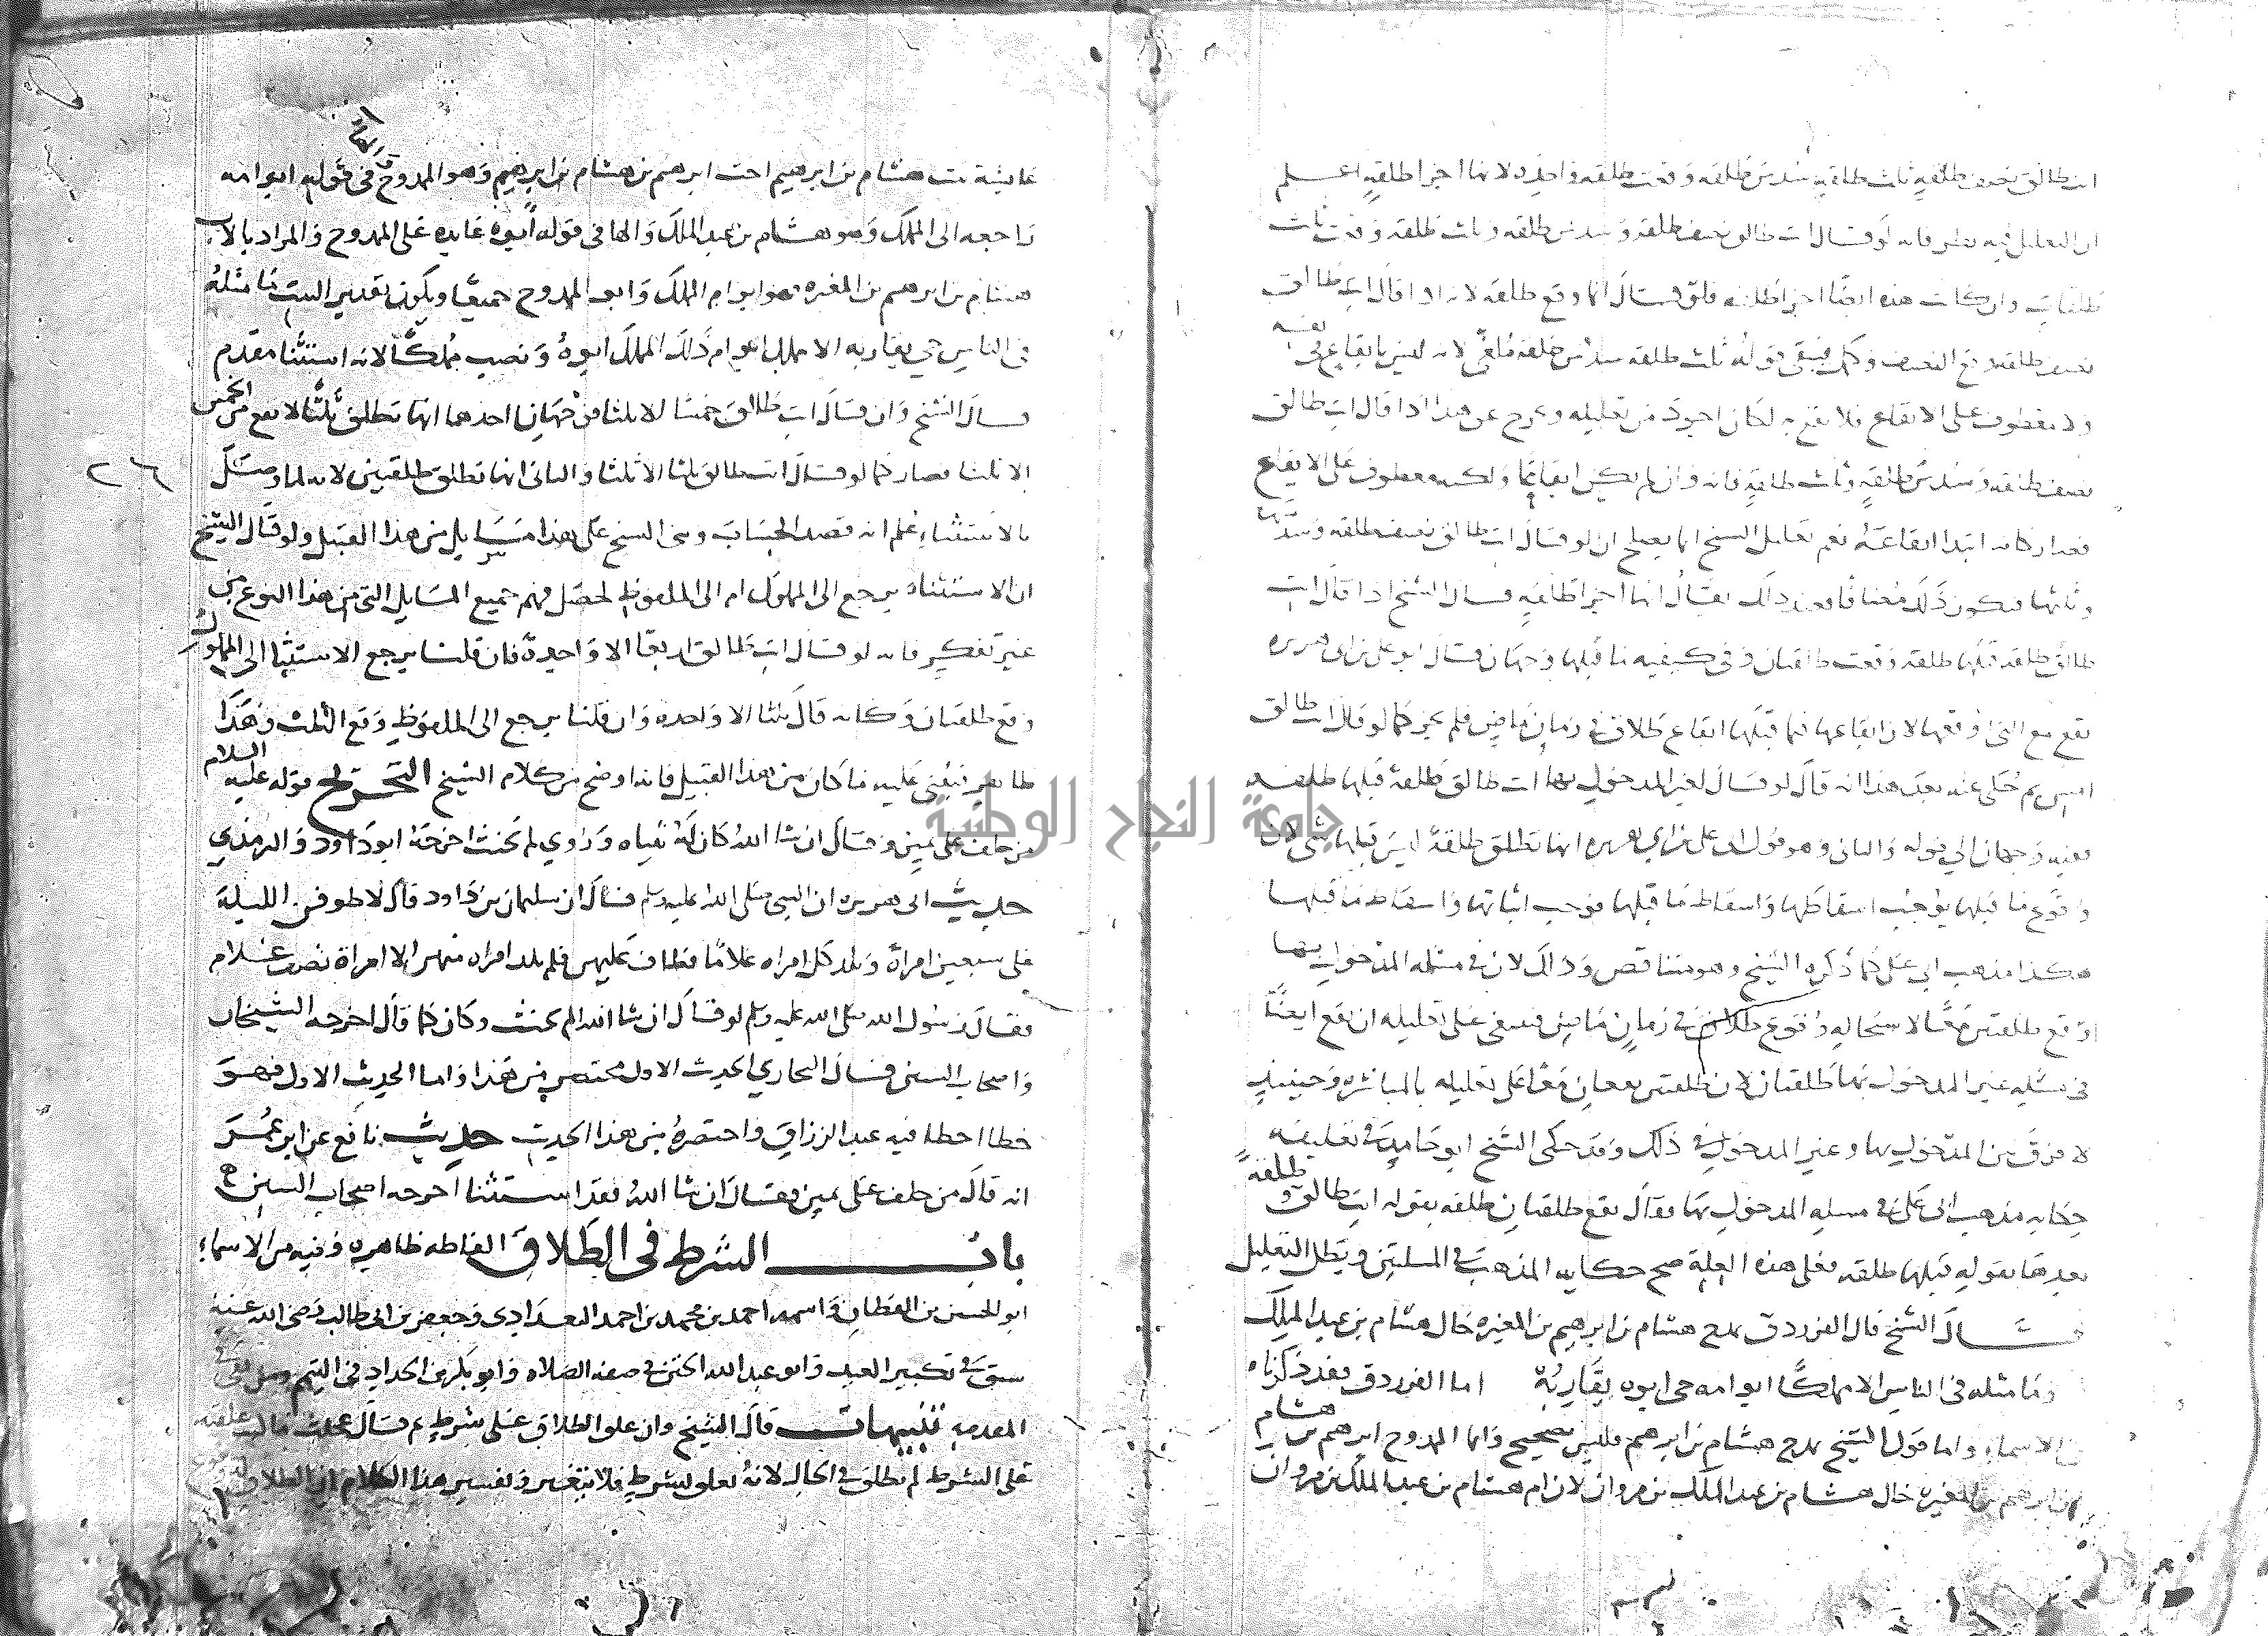 انت طالق نصف طلقة ثلث طلقة سدس طلقة وقعت طلقة واحدة لانها اجزا طلقة اعلم
ان التعليل فيه نظر فانه لو قال انت طالق نصف طلقة وسدس طلقة وثلث طلقة وقعت ثلث
طلقات وان كانت هذه ايضا اجزا طلقة فلو قال انما وقع طلقة لانه اذا قال انت طالق
نصف طلقة وقع النصف وكمل فيبقى قوله ثلث طلقة سدس طلقة ملغى لانه ليس بايقاع في نفسه
ولا معطوف على الايقاع فلا يقع به لكان اجود من تعليله وخرج عن هذا اذا قال انت طالق
نصف طلقة وسدس طلقة وثلث طلقة فانه وان لم يكن ايقاعا ولكنه معطوف على الايقاع
فصار كانه ابتدا ايقاعه نعم تعليل الشيخ انما يصلح ان لو قال انت طالق نصف طلقة وسدسها
وثلثها فيكون ذلك مضافا فعند ذلك يقال انها اجزا طلقة قال الشيخ اذا قال انت
طالق طلقة قبلها طلقة وقعت طلقتان وفي كيفية ما قبلها وجهان قال ابو علي بن ابي هريره
يقع مع التي اوقعها لان ايقاعها فيما قبلها ايقاع طلاق في زمان ماض فلم يجز كما لو قال انت طالق
امس ثم حكى عنه بعد هذا انه قال لو قال لغير المدخول بها انت طالق طلقة قبلها طلقة
ففيه وجهان الى قوله والثاني وهو قول ابي علي بن ابي هريره انها تطلق طلقة ليس قبلها شي لان
وقوع ما قبلها يوجب اسقاطها واسقاط ما قبلها فوجب اثباتها واسقاط ما قبلها
هكذا مذهب ابي علي كما ذكره الشيخ وهو متناقض وذلك لان في مسله المدخول بها
اوقع طلقتين معا لاستحاله وقوع طلاق في زمان ماض فينبغي على تعليله ان يقع ايضا
في مسله غير المدخول بها طلقتان لان طلقتين يقعان معا على تعليله بالمباشره وحينئذ
لا فرق بين المدخول بها وغير المدخول في ذلك وقد حكى الشيخ ابو حامد في تعليقه
حكايه مذهب ابي علي في مسله المدخول بها فقال يقع طلقتان طلقه بقوله انت طالق طلقة و
بعدها بقوله قبلها طلقه فعلى هذه العله صح حكايه المذهب في المسلتين وبطل التعليل
قال الشيخ قال الفرزدق يمدح هشام بن ابرهيم بن المغيره خال هشام بن عبد الملك
وما مثله في الناس الا مملكا ابو امه حي ابوه يقاربه اما الفرزدق فقد ذكرناه
في الاسماء واما قول الشيخ يمدح هشام بن ابرهيم فليس بصحيح وانما الممدوح ابرهيم بن هشام
بن ابرهيم بن المغيره خال هشام بن عبد الملك بن مروان لان ام هشام بن عبد الملك بن مروان
عايشة بنت هشام بن ابرهيم اخت ابرهيم بن هشام بن ابرهيم وهو الممدوح والهاء في قوله ابو امه
راجعه الى المملك وهو هشام بن عبد الملك والها في قوله ابوه عايده على الممدوح والمراد بالاب
هشام بن ابرهيم بن المغيره فهو ابو ام المملك وابو الممدوح جميعا ويكون تقدير البيت ما مثله
في الناس حي يقاربه الا مملك ابو ام ذلك المملك ابوه ونصب مملكا لانه استثنا مقدم
قال الشيخ وان قال انت طالق خمسا الا ثلثا فوجهان احدهما انها تطلق ثلثا لا يقع من الخمس
الا ثلثا فصار كما لو قال انت طالق ثلثا الا ثلثا والثاني انها تطلق طلقتين لانه لما وصل
٢٦
بالاستثناء علم انه قصد الحساب وبنى الشيخ على هذا مسايل من هذا القبيل ولو قال الشيخ
ان الاستثناء يرجع الى المملوك ام الى الملفوظ لحصل فهم جميع المسايل التي من هذا النوع من
غير تفكير فانه لو قال انت طالق اربعا الا واحدة فان قلنا يرجع الاستثنا الى المملوك
وقع طلقتان وكانه قال ثلثا الا واحده وان قلنا يرجع الى الملفوظ وقع الثلث وهذا
ظاهر تبنى عليه ما كان من هذا القبيل فانه اوضح من كلام الشيخ التخريج قوله عليه السلام
من حلف على يمين وقال ان شا الله كان له ثنياه وروي لم يحنث اخرجه ابو داود والترمذي
حديث ابي هريره ان النبي صلى الله عليه وسلم قال ان سليمان بن داود قال لاطوفن الليلة
على سبعين امراة وتلد كل امراه غلاما فطاف عليهن فلم تلد امراه منهن الا امراة نصف غلام
فقال رسول الله صلى الله عليه وسلم لو قال ان شا الله لم يحنث وكان كما قال اخرجه الشيخان
واصحاب السنن قال البخاري الحديث الاول مختصر من هذا واما الحديث الاول فهو
خطا اخطا فيه عبد الرزاق واختصره من هذا الحديث حديث نافع عن ابن عمر
انه قال من حلف على يمين فقال ان شا الله فقد استثنا اخرجه اصحاب السنن
باب الشرط في الطلاق الفاظه ظاهره وفيه من الاسماء
ابو الحسن بن القطان واسمه احمد بن محمد بن احمد البغدادي وجعفر بن ابي طالب رضي الله عنه
سبق في تكبير العيد وابو عبد الله الختن في صفه الصلاه وابو بكر بن الحداد في التيمم
المقدمه تنبيهات قال الشيخ وان علق الطلاق على شرط ثم قال عجلت
على الشرط لم تطلق في الحال لانه تعلق بشرط فلا يتغير وتفسير هذا الكلام ان الطلاق